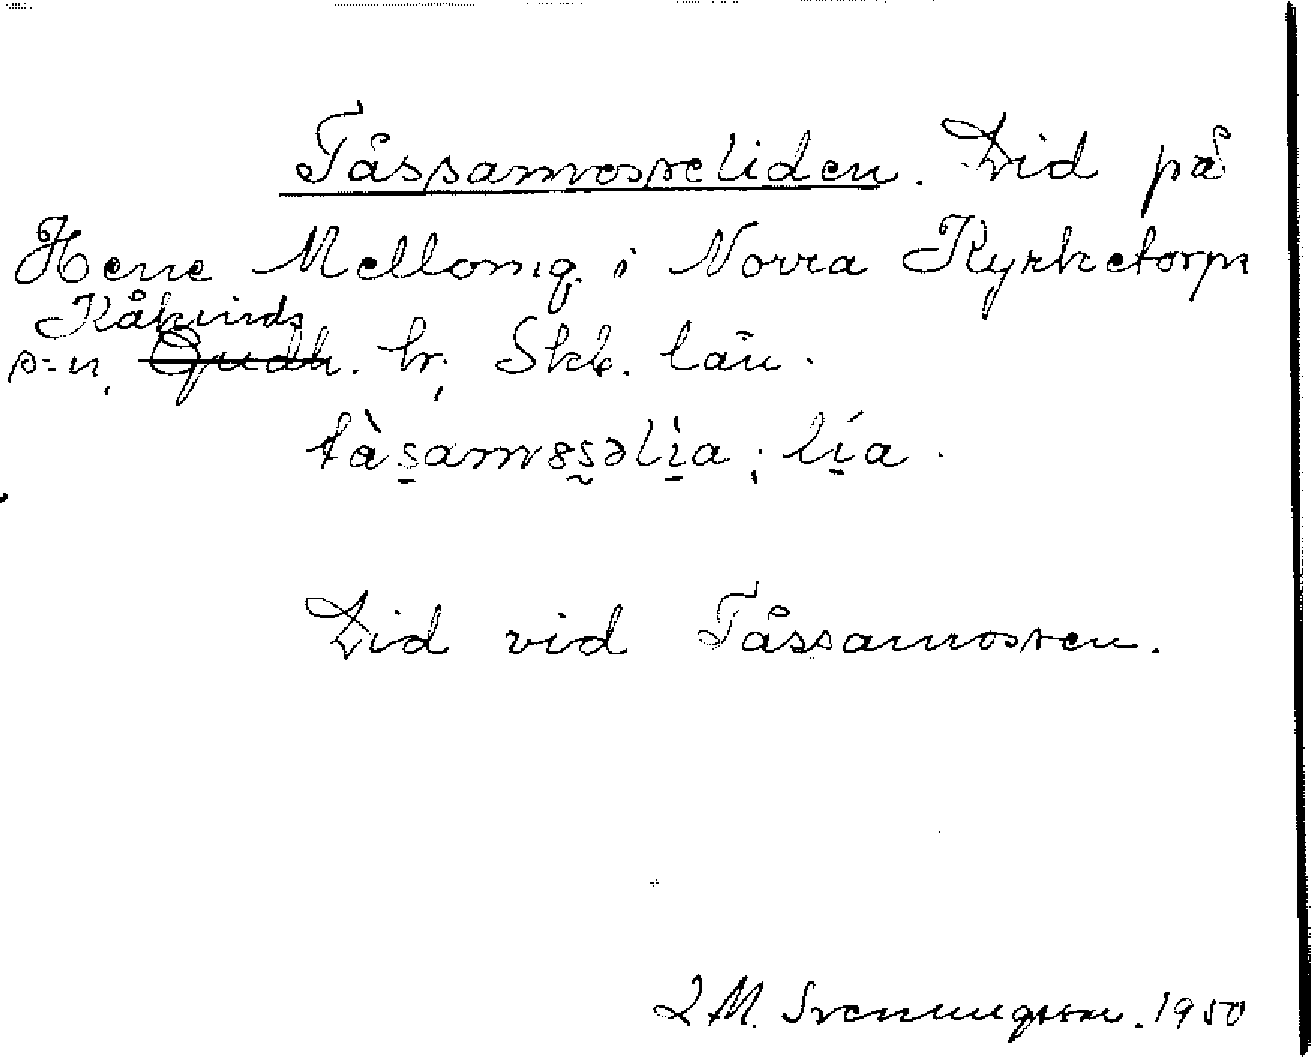 Tåssamosseliden. Lid på
Herre Mellomg. i Norra Kyrketorp
Kåkinds
s-n, Gudh. hr, Skb. län.
tàsamosəlìa; lía.
Lid vid Tåssamossen.
L M. Svenungsson. 1950